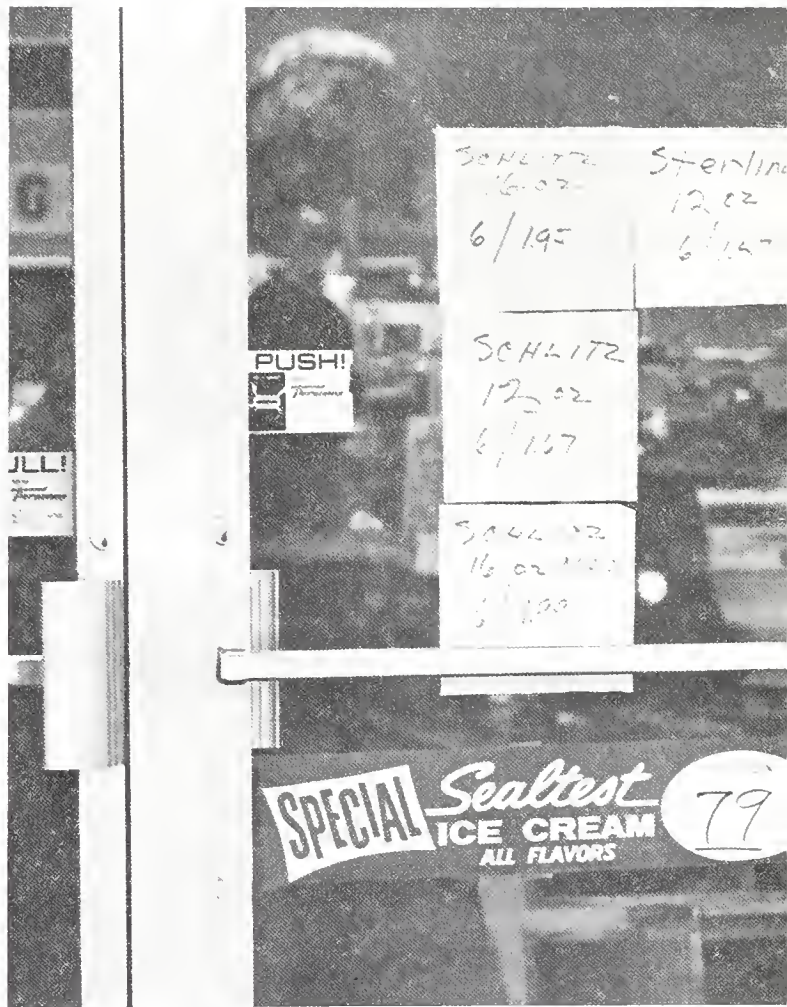 G
SCHLITZ
16 oz
6/1.95
Sterling
12 oz
PUSH!
SCHLITZ
12 oz
6/1.57
ULL!
16 oz
SPECIAL
Sealtest
ICE CREAM
ALL FLAVORS
79